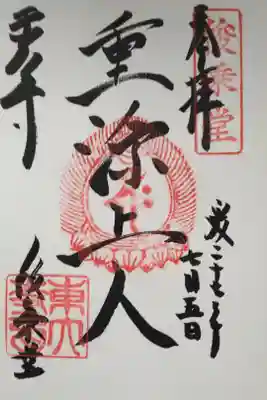 俊乗堂
奉拝
平成二十七年
七月五日
重源上人
東大寺
俊乗堂